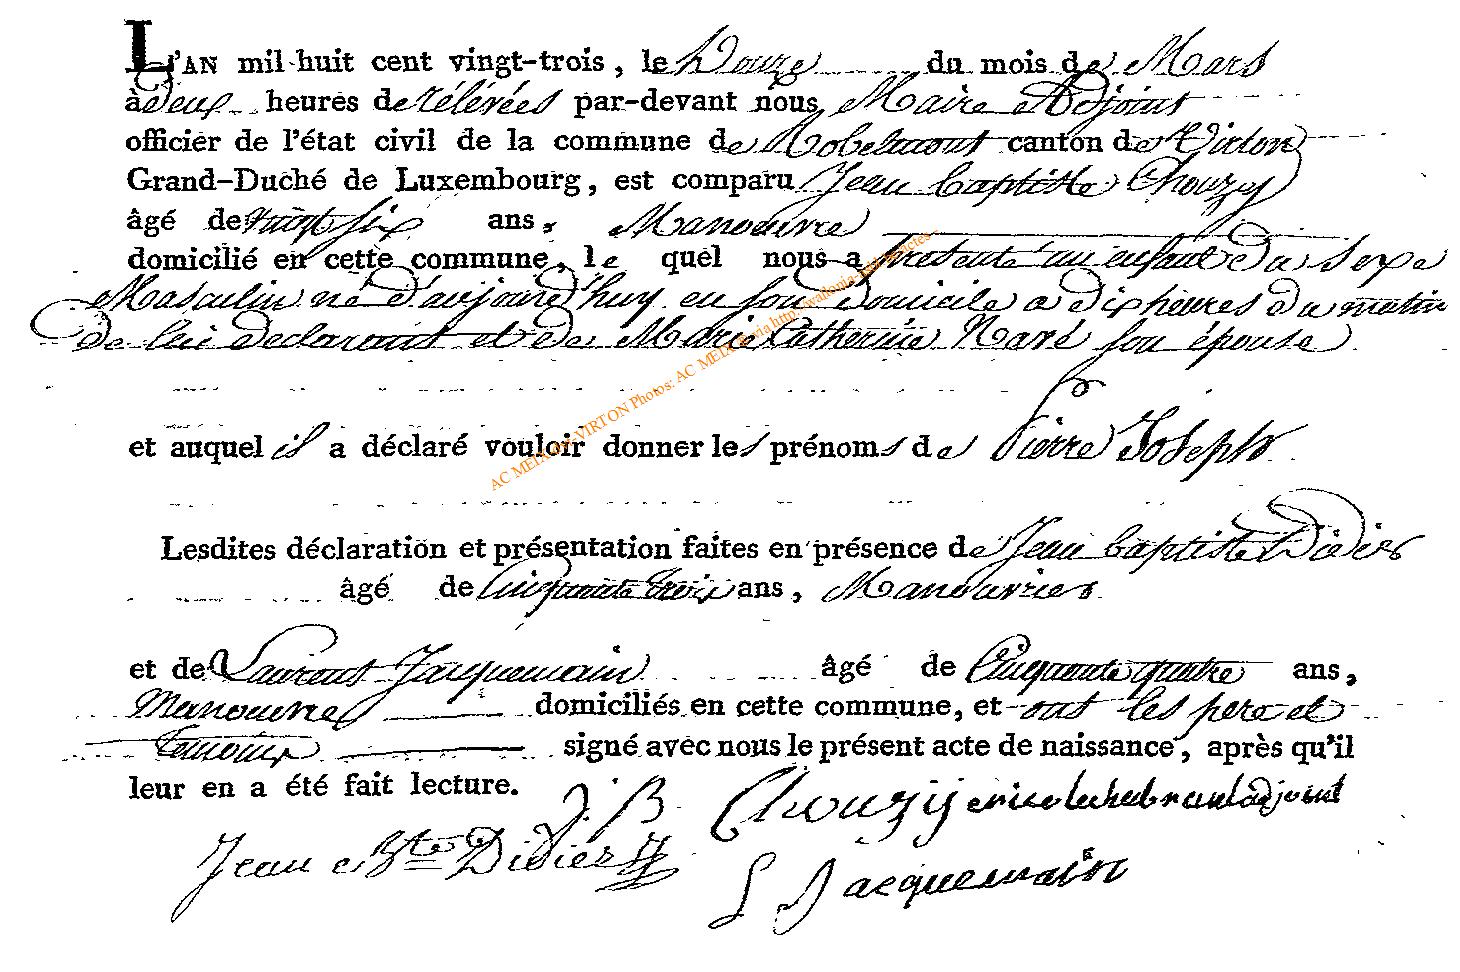 L'AN mil huit cent vingt-trois, le Douze du mois de Mars
à deux heures de rélévées par-devant nous Maire Adjoint
officier de l'état civil de la commune de Robelmont canton de Virton
Grand-Duché de Luxembourg, est comparu Jean baptiste Chouzy
âgé de vingt six ans, Manouvre
domicilié en cette commune, le quel nous a présenté un enfant du sexe
Masculin né d'aujourd'huy en son domicile a dix heures du matin
de lui declarant et de Marie Catherine Navé son épouse
et auquel il a déclaré vouloir donner les prénoms de Pierre Joseph
Lesdites déclaration et présentation faites en présence de Jean baptiste Didier
âgé de Cinquante trois ans, Manouvrier
et de Laurent Jacquemain âgé de Cinquante quatre ans,
Manouvre domiciliés en cette commune, et ont les pere et
temoins signé avec nous le présent acte de naissance, après qu'il
leur en a été fait lecture. J. B. Chouzy adjoint
Jean Bte Didier
L Jacquemain
AC MEIX-dvt-VIRTON Photos: AC MEIX via http://wallonia